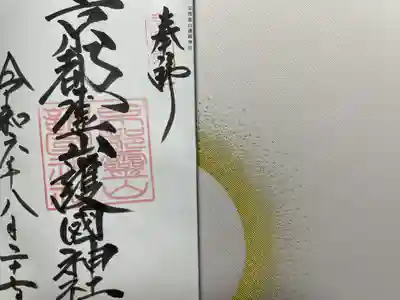 奉拝
京都霊山護國神社
令和六年八月二十